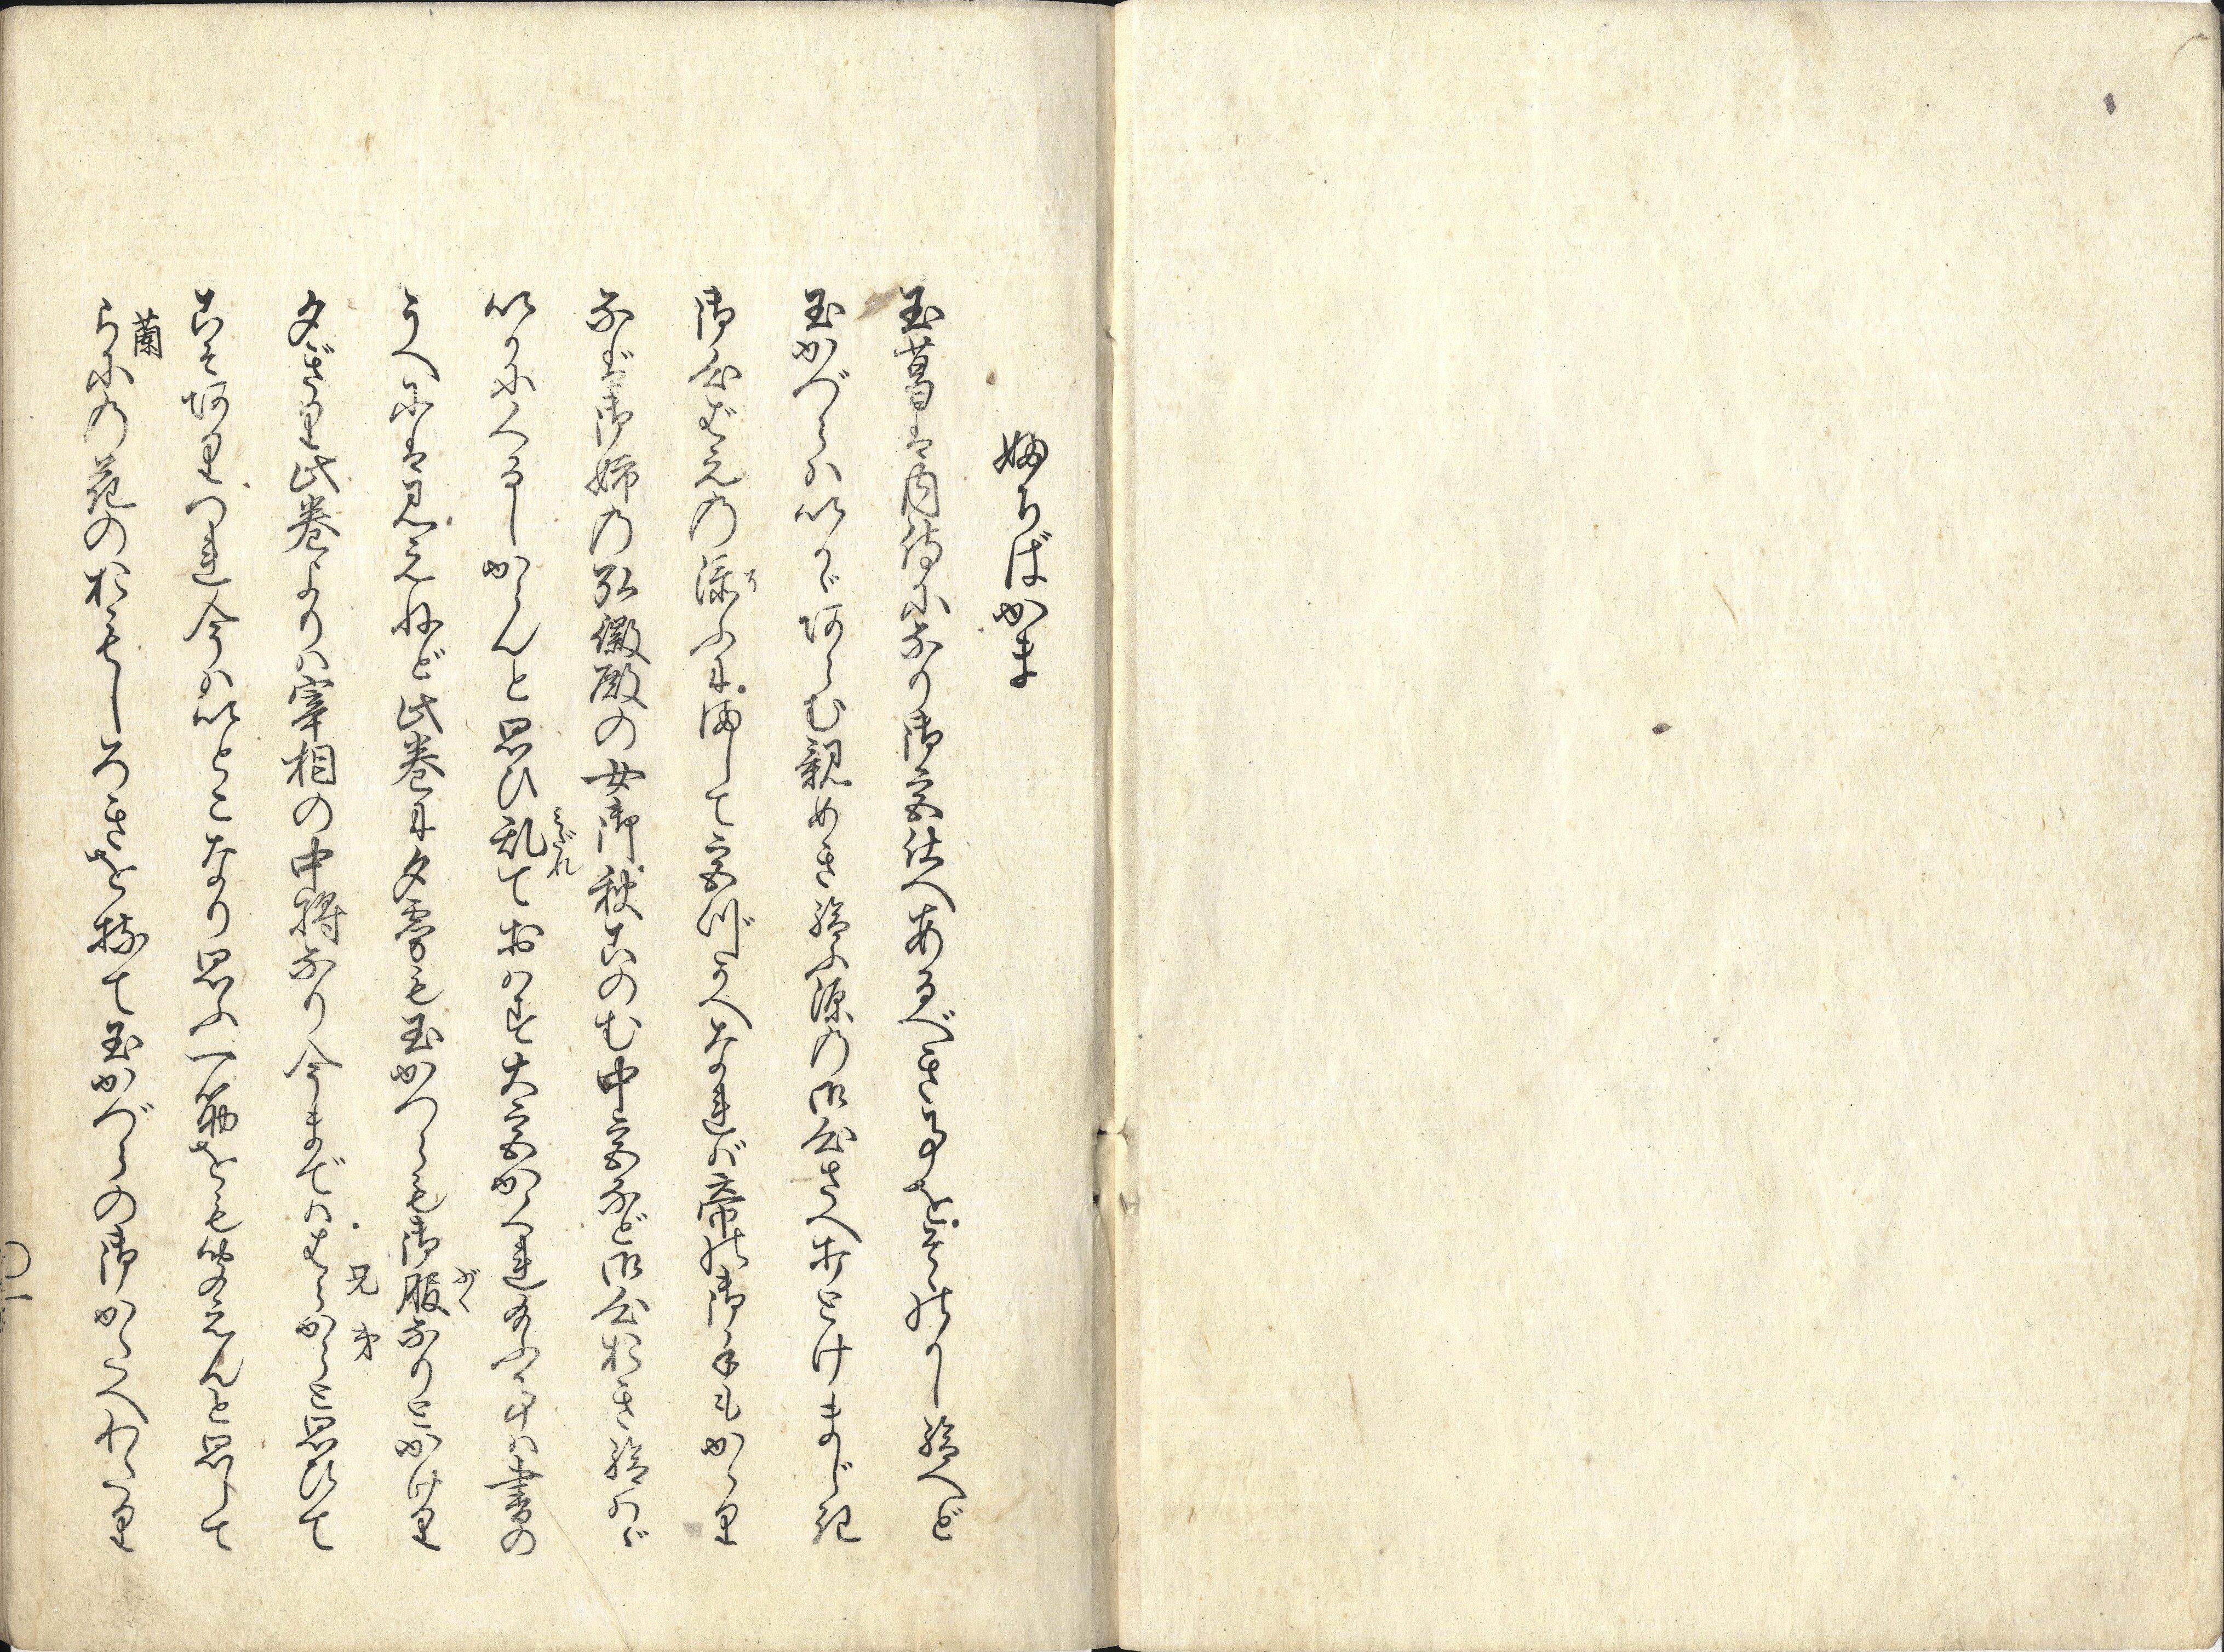 ふぢばかま
玉葛は内侍になり御宮仕へあるべき事をそゝのかし給へど
玉かづらはいかゞあらむ親めき給ふ源の御心さへおとけまじき
御心ばえの添ふにまして宮づかへなればば帝の御手もかゝり
なば御姉の弘徽殿の女御秋このむ中宮など御心おき給はゞ
いかにくるしからんと思ひ乱ておはす大宮かくれ給ふ事は書の
うへには見えねど此巻に夕霧も玉かつらも御服なりとかけり
夕ぎり此巻よりは宰相の中将なり今までははらからと思ひて
こそありつれ今はいとこなり思ふ一筋をも聞えんと思して
らにの花のおもしろきを持て玉かづらの御かたへわたり
蘭
兄弟
みだれ
ぶく